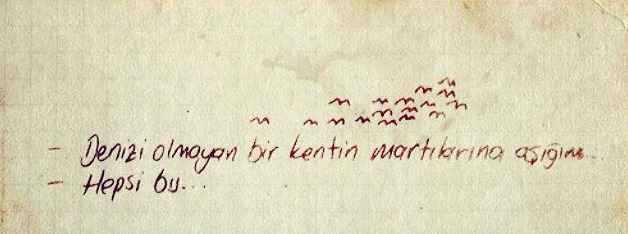 - Denizi olmayan bir kentin martılarına aşığım...
- Hepsi bu...